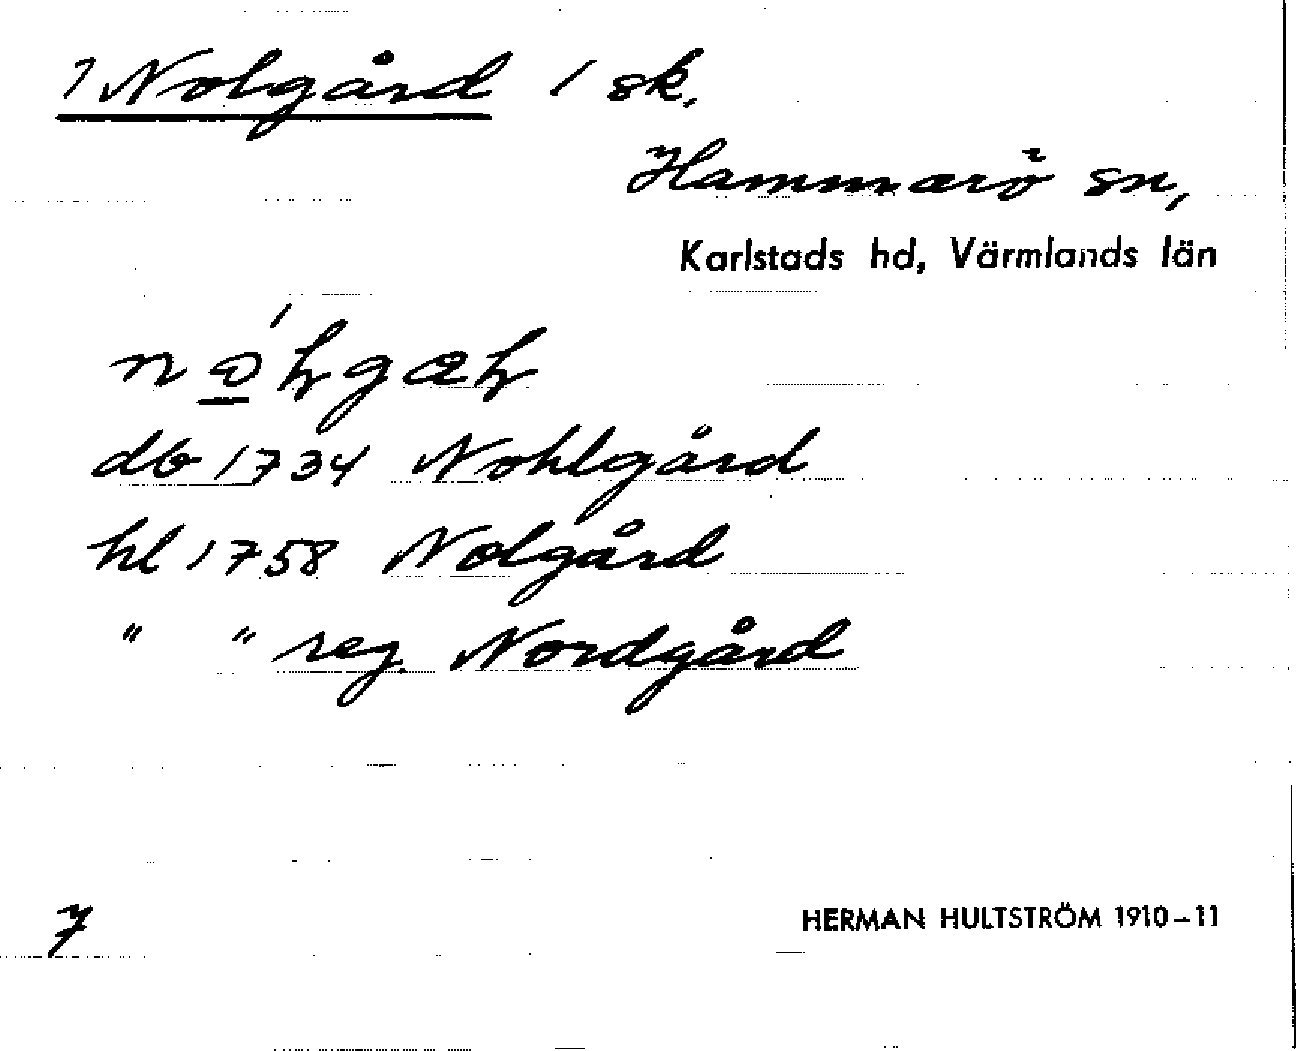 1 Nolgård 1 sk.
Hammarö sn,
Karlstads hd, Värmlands län
db 1734 Nohlgård
hl 1758 Nolgård
" " reg. Nordgård
7
HERMAN HULTSTRÖM 1910–11